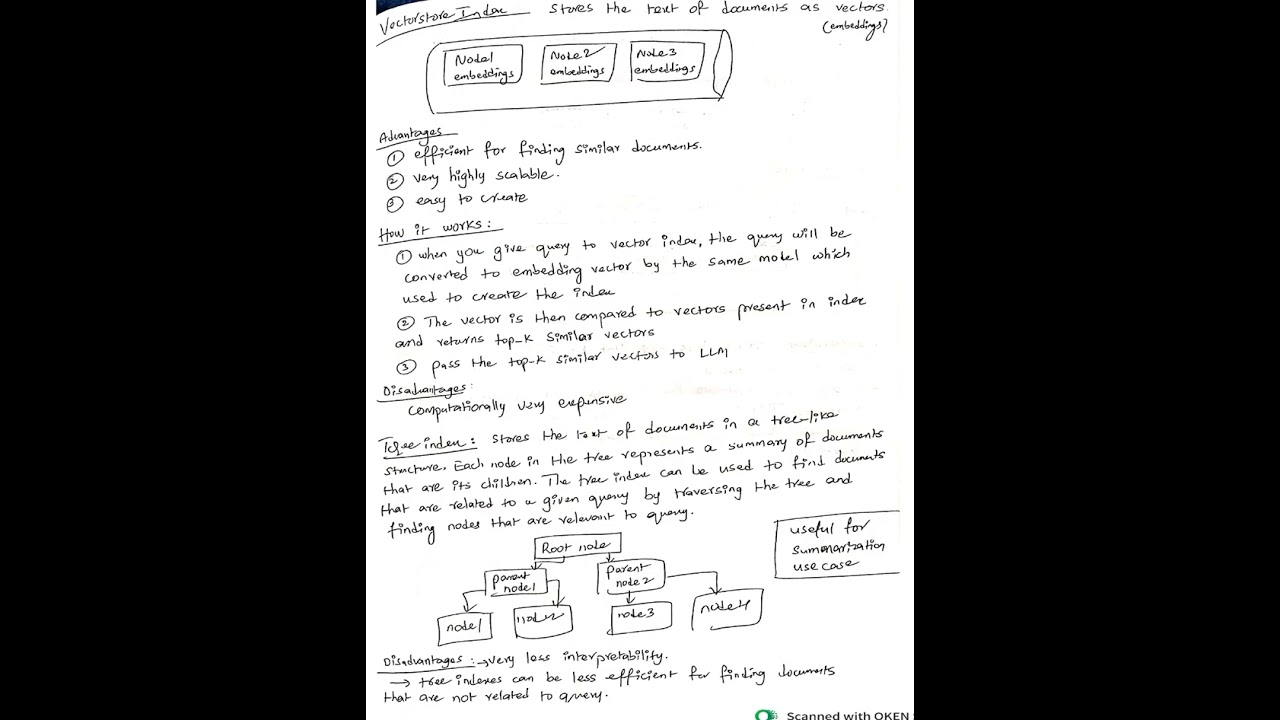 Vectorstore Index stores the text of documents as vectors.
(embeddings)
Node1 embeddings
Node2 embeddings
Node3 embeddings
Advantages
① efficient for finding similar documents.
② very highly scalable.
③ easy to create
How it works:
① when you give query to vector index, the query will be
converted to embedding vector by the same model which
used to create the index
② The vector is then compared to vectors present in index
and returns top-k similar vectors
③ pass the top-k similar vectors to LLM
Disadvantages:
computationally very expensive
Tree index: stores the text of documents in a tree-like
structure. Each node in the tree represents a summary of documents
that are its children. The tree index can be used to find documents
that are related to a given query by traversing the tree and
finding nodes that are relevant to query.
useful for
summarization
use case
Root node
parent node1
parent node2
node1
node2
node3
node4
Disadvantages: → very less interpretability.
→ tree indexes can be less efficient for finding documents
that are not related to query.
Scanned with OKEN